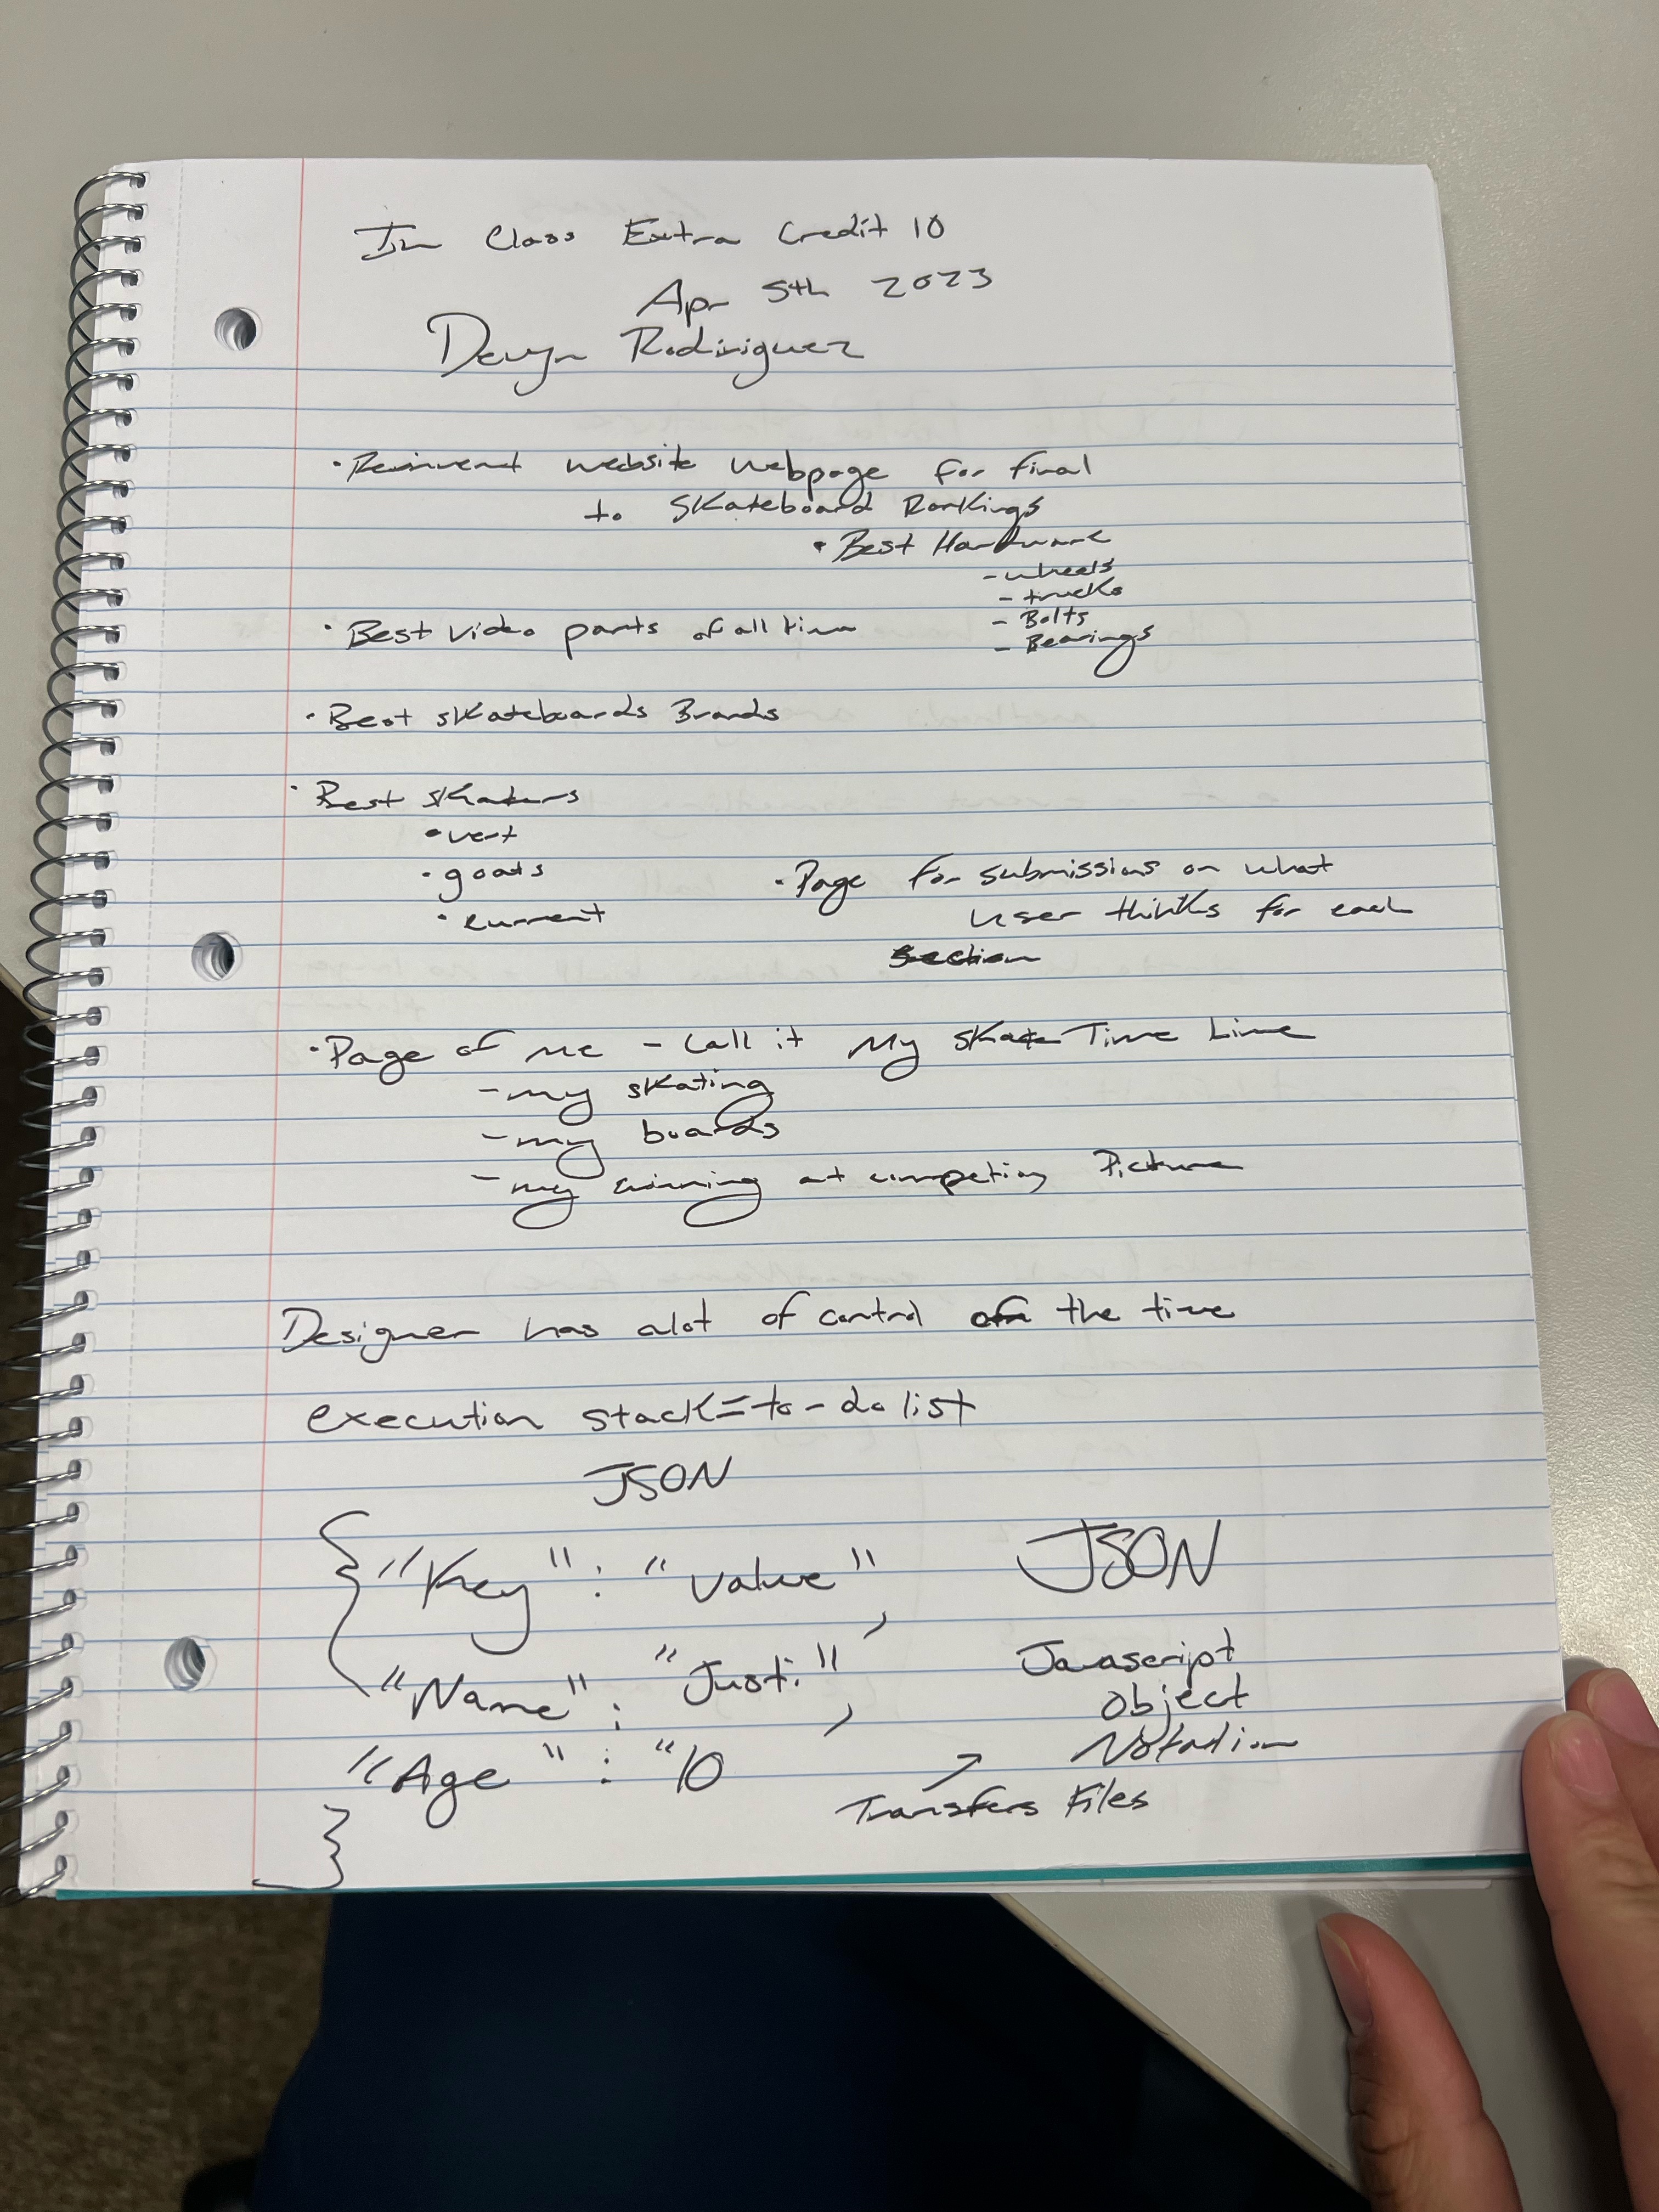 In Class Extra Credit 10
Apr 5th 2023
Devyn Rodiriguez
· Reinvent website webpage for final
to Skateboard Rankings
· Best Hardware
- wheels
- trucks
- Bolts
- Bearings
· Best video parts of all time
· Best skateboards Brands
· Best skaters
· vert
· goats
· current
· Page for submissions on what
user thinks for each
section
· Page of me - call it My skate Time Line
- my skating
- my boards
- my winning at competing Picture
Designer has alot of control of the time
execution stack = to-do list
JSON
{ "Key" : "value",
"Name" : "Justi",
"Age" : "10
}
JSON
Javascript
Object
Notation
↗
Transfers Files